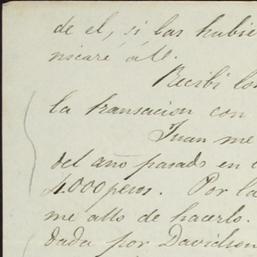 de el, si las hubie
nicaré á U.
Recibi los
la transacion con
Juan me
del año pasado en e
4.000 pesos. Por la
me allo de hacerlo.
dada por Davidson